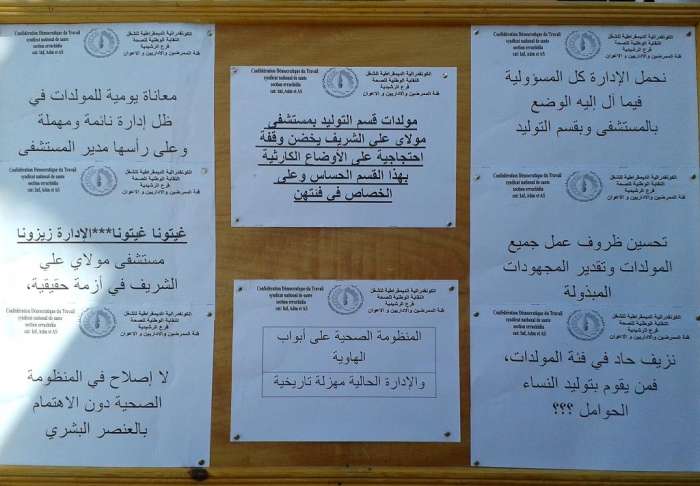 Confédération Démocratique du Travail
syndicat national de sante
section errachidia
cat: Inf, Adm et AS
الكونفدرالية الديمقراطية للشغل
النقابة الوطنية للصحة
فرع الرشيدية
فئة الممرضين والاداريين و الاعوان
معاناة يومية للمولدات في
ظل إدارة نائمة ومهملة
وعلى رأسها مدير المستشفى
Confédération Démocratique du Travail
syndicat national de sante
section errachidia
cat: Inf, Adm et AS
الكونفدرالية الديمقراطية للشغل
النقابة الوطنية للصحة
فرع الرشيدية
فئة الممرضين والاداريين و الاعوان
غيتونا غيتونا***الإدارة زيزونا
مستشفى مولاي علي
الشريف في أزمة حقيقية،
Confédération Démocratique du Travail
syndicat national de sante
section errachidia
cat: Inf, Adm et AS
الكونفدرالية الديمقراطية للشغل
النقابة الوطنية للصحة
فرع الرشيدية
فئة الممرضين والاداريين و الاعوان
لا إصلاح في المنظومة
الصحية دون الاهتمام
بالعنصر البشري
Confédération Démocratique du Travail
syndicat national de sante
section errachidia
cat: Inf, Adm et AS
الكونفدرالية الديمقراطية للشغل
النقابة الوطنية للصحة
فرع الرشيدية
فئة الممرضين والاداريين و الاعوان
مولدات قسم التوليد بمستشفى
مولاي علي الشريف يخضن وقفة
احتجاجية على الأوضاع الكارثية
بهذا القسم الحساس وعلى
الخصاص في فئتهن
Confédération Démocratique du Travail
syndicat national de sante
section errachidia
cat: Inf, Adm et AS
الكونفدرالية الديمقراطية للشغل
النقابة الوطنية للصحة
فرع الرشيدية
فئة الممرضين والاداريين و الاعوان
المنظومة الصحية على أبواب
الهاوية
والإدارة الحالية مهزلة تاريخية
Confédération Démocratique du Travail
syndicat national de sante
section errachidia
cat: Inf, Adm et AS
الكونفدرالية الديمقراطية للشغل
النقابة الوطنية للصحة
فرع الرشيدية
فئة الممرضين والاداريين و الاعوان
نحمل الإدارة كل المسؤولية
فيما آل إليه الوضع
بالمستشفى وبقسم التوليد
Confédération Démocratique du Travail
syndicat national de sante
section errachidia
cat: Inf, Adm et AS
الكونفدرالية الديمقراطية للشغل
النقابة الوطنية للصحة
فرع الرشيدية
فئة الممرضين والاداريين و الاعوان
تحسين ظروف عمل جميع
المولدات وتقدير المجهودات
المبذولة
Confédération Démocratique du Travail
syndicat national de sante
section errachidia
cat: Inf, Adm et AS
الكونفدرالية الديمقراطية للشغل
النقابة الوطنية للصحة
فرع الرشيدية
فئة الممرضين والاداريين و الاعوان
نزيف حاد في فئة المولدات،
فمن يقوم بتوليد النساء
الحوامل ؟؟؟